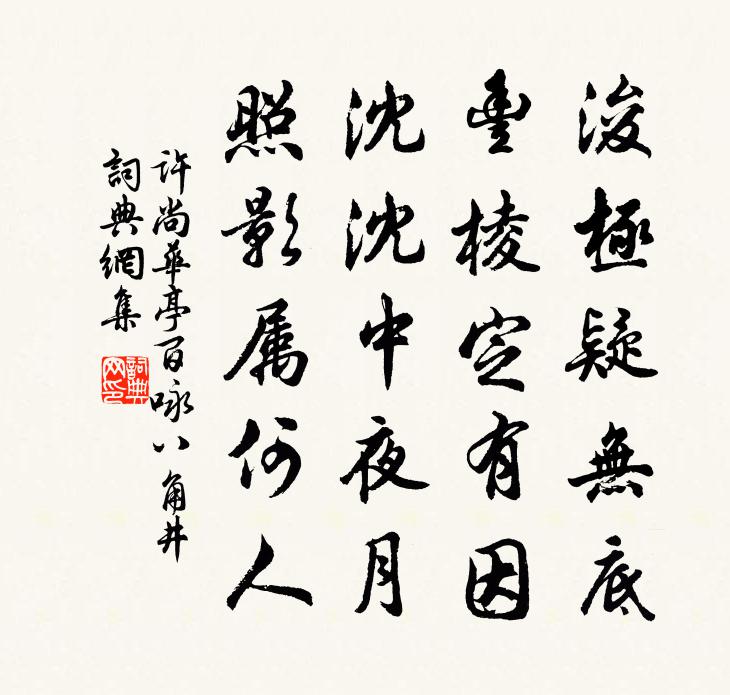 浚極疑無底
疊棱定有因
沈沈中夜月
照影属何人
許尚華亭百咏八角井
詞典網集
詞典網印